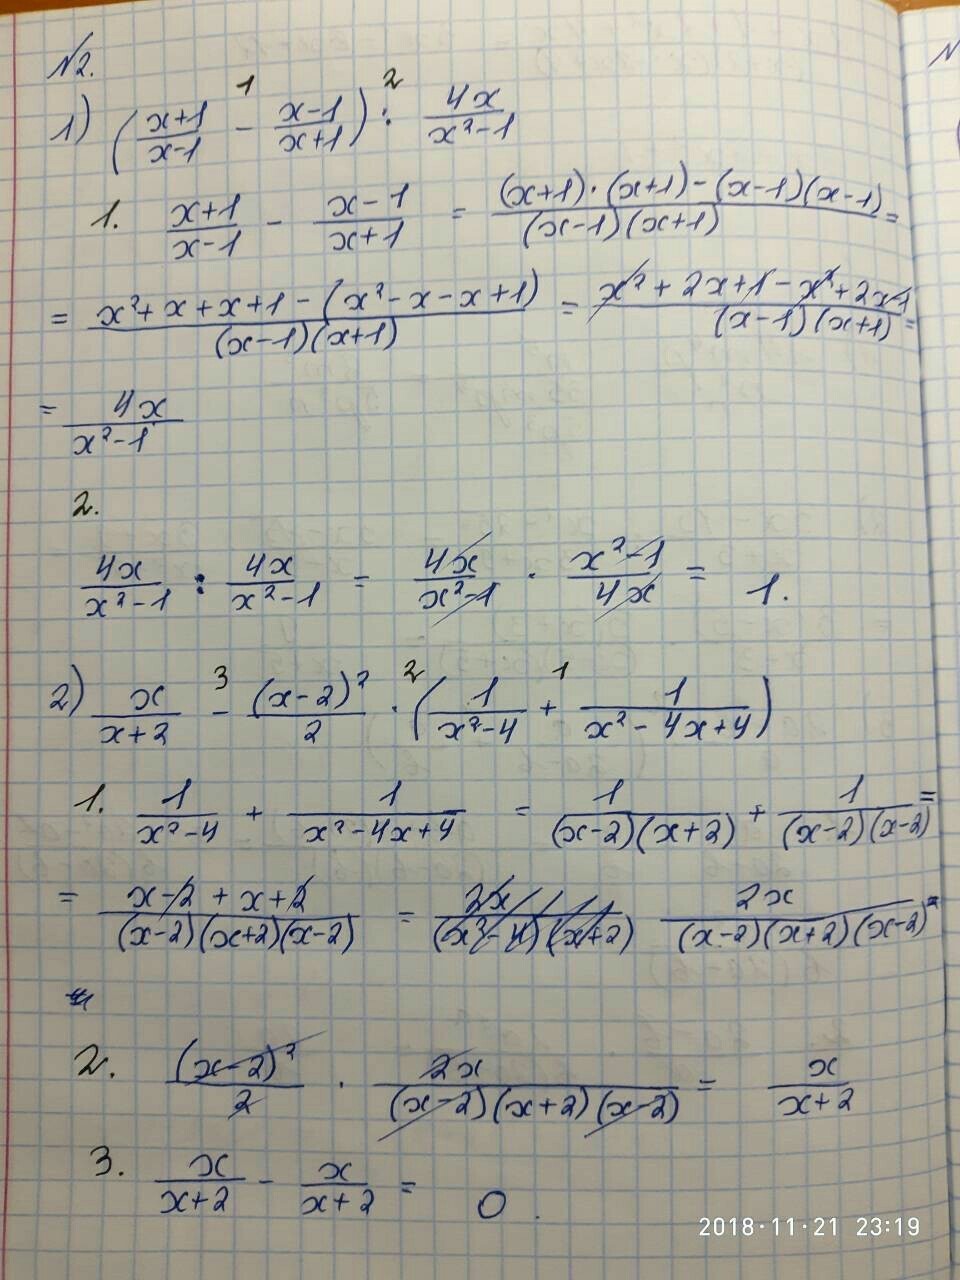 №2.
1) ((x+1)/(x-1) -¹ (x-1)/(x+1)) :² 4x/(x²-1)
1. (x+1)/(x-1) - (x-1)/(x+1) = ((x+1)·(x+1)-(x-1)(x-1))/((x-1)(x+1)) =
= (x²+x+x+1-(x²-x-x+1))/((x-1)(x+1)) = (x²+2x+1-x²+2x-1)/((x-1)(x+1)) =
= 4x/(x²-1)
2.
4x/(x²-1) : 4x/(x²-1) = 4x/(x²-1) · (x²-1)/4x = 1.
2) x/(x+2) -³ (x-2)²/2 ·² (1/(x²-4) +¹ 1/(x²-4x+4))
1. 1/(x²-4) + 1/(x²-4x+4) = 1/((x-2)(x+2)) + 1/((x-2)(x-2)) =
= (x-2+x+2)/((x-2)(x+2)(x-2)) = 2x/((x²-4)(x+2)) 2x/((x-2)(x+2)(x-2)) =
2. (x-2)²/2 · 2x/((x-2)(x+2)(x-2)) = x/(x+2)
3. x/(x+2) - x/(x+2) = 0.
2018·11·21 23:19